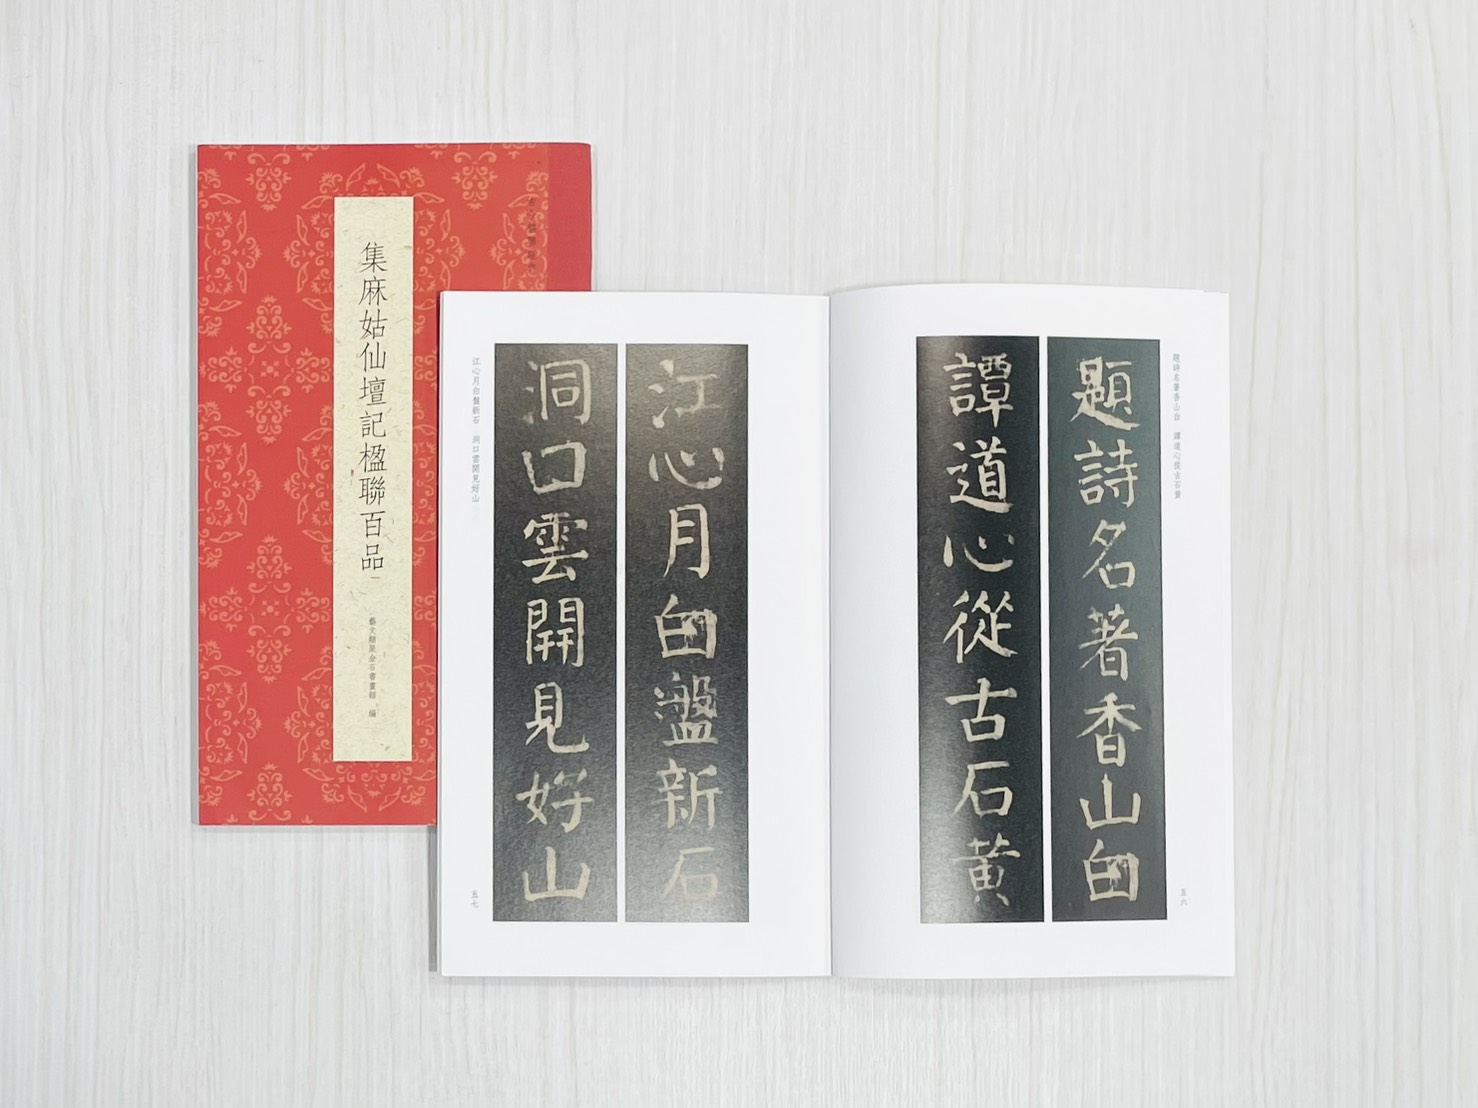 集麻姑仙壇記楹聯百品
藝文類聚金石書畫館 編
題詩名著香山白 譚道心從古石黃
題詩名著香山白
譚道心從古石黃
五六
江心月白盤新石
洞口雲開見好山
江心月白盤新石 洞口雲開見好山
五七